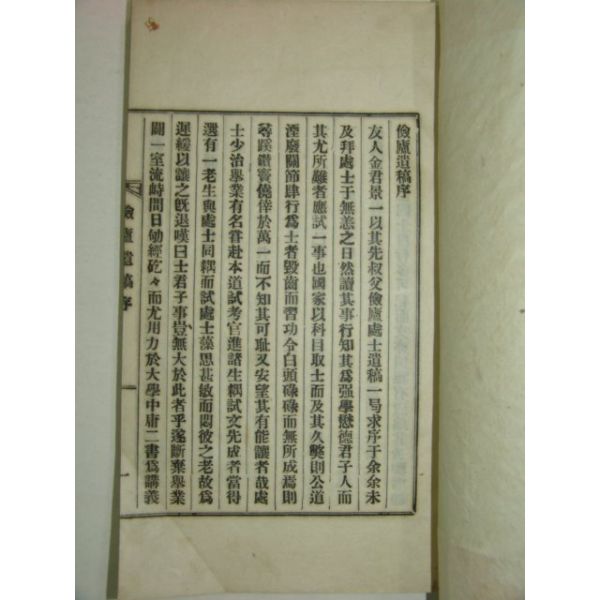 儉廬遺稿序
友人金君景一以其先叔父儉廬處士遺稿一号求序于余余未
及拜處士于無恙之日然讀其事行知其爲强學懋德君子人而
其尤所難者應試一事也國家以科目取士而及其久獘則公道
湮廢關節肆行爲士者毁齒而習功令白頭碌碌而無所成焉則
尋蹊鑽竇僥倖於萬一而不知其可耻又安望其有能讓者哉處
士少治擧業有名甞赴本道試考官進諸生耦試文先成者當得
選有一老生與處士同耦而試處士藻思甚敏而悶彼之老故爲
遲緩以讓之旣退嘆曰士君子事豈無大於此者乎遂斷棄擧業
闢一室流峙間日劬經矻々而尤用力於大學中庸二書爲講義
儉廬遺稿序
一